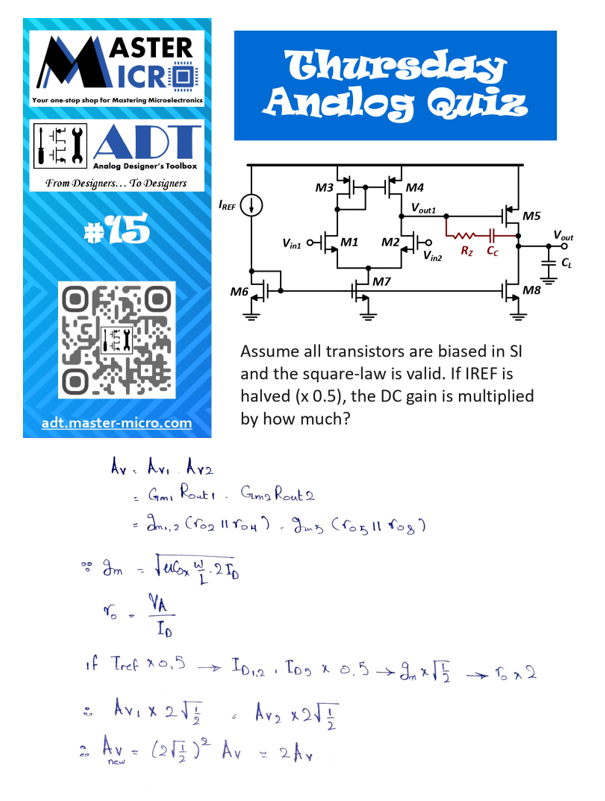 MASTER
MICRO
Your one-stop shop for Mastering Microelectronics
ADT
Analog Designer's Toolbox
From Designers… To Designers
#15
adt.master-micro.com
Thursday
Analog Quiz
M3
M4
IREF
Vout1
M5
Vout
Vin1
M1
M2
Vin2
RZ
CC
CL
M6
M7
M8
Assume all transistors are biased in SI
and the square-law is valid. If IREF is
halved (x 0.5), the DC gain is multiplied
by how much?
Av = Av1 . Av2
= Gm1 Rout1 . Gm2 Rout2
= gm1,2 (ro2 || ro4) . gm5 (ro5 || ro8)
∵ gm = √(μCox W/L . 2ID)
ro = VA/ID
if Iref x 0,5 → ID1,2 , ID5 x 0,5 → gm x √(1/2) → ro x 2
∴ Av1 x 2√(1/2) , Av2 x 2√(1/2)
∴ Av new = (2√(1/2))² Av = 2Av